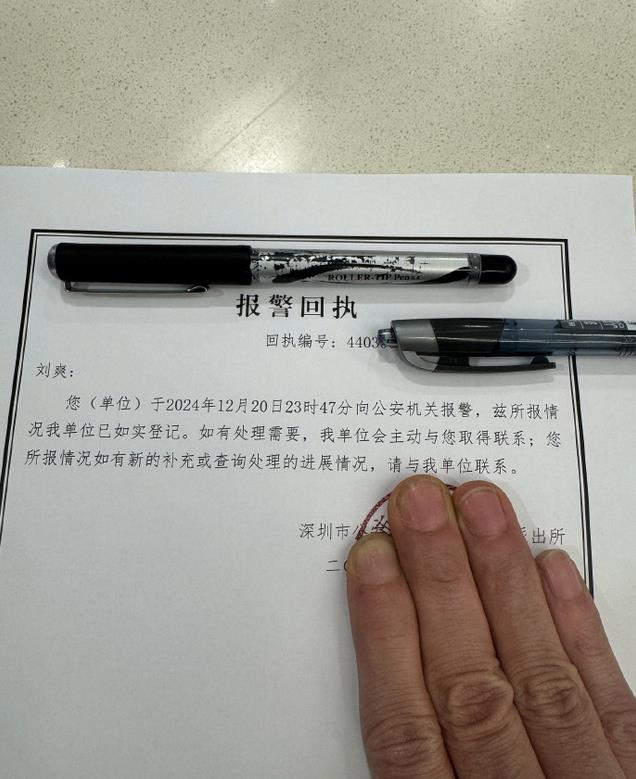 ROLLER-TIP Pen
报警回执
回执编号：4403
刘爽：
您（单位）于2024年12月20日23时47分向公安机关报警，兹所报情
况我单位已如实登记。如有处理需要，我单位会主动与您取得联系；您
所报情况如有新的补充或查询处理的进展情况，请与我单位联系。
深圳市公 派出所
二〇